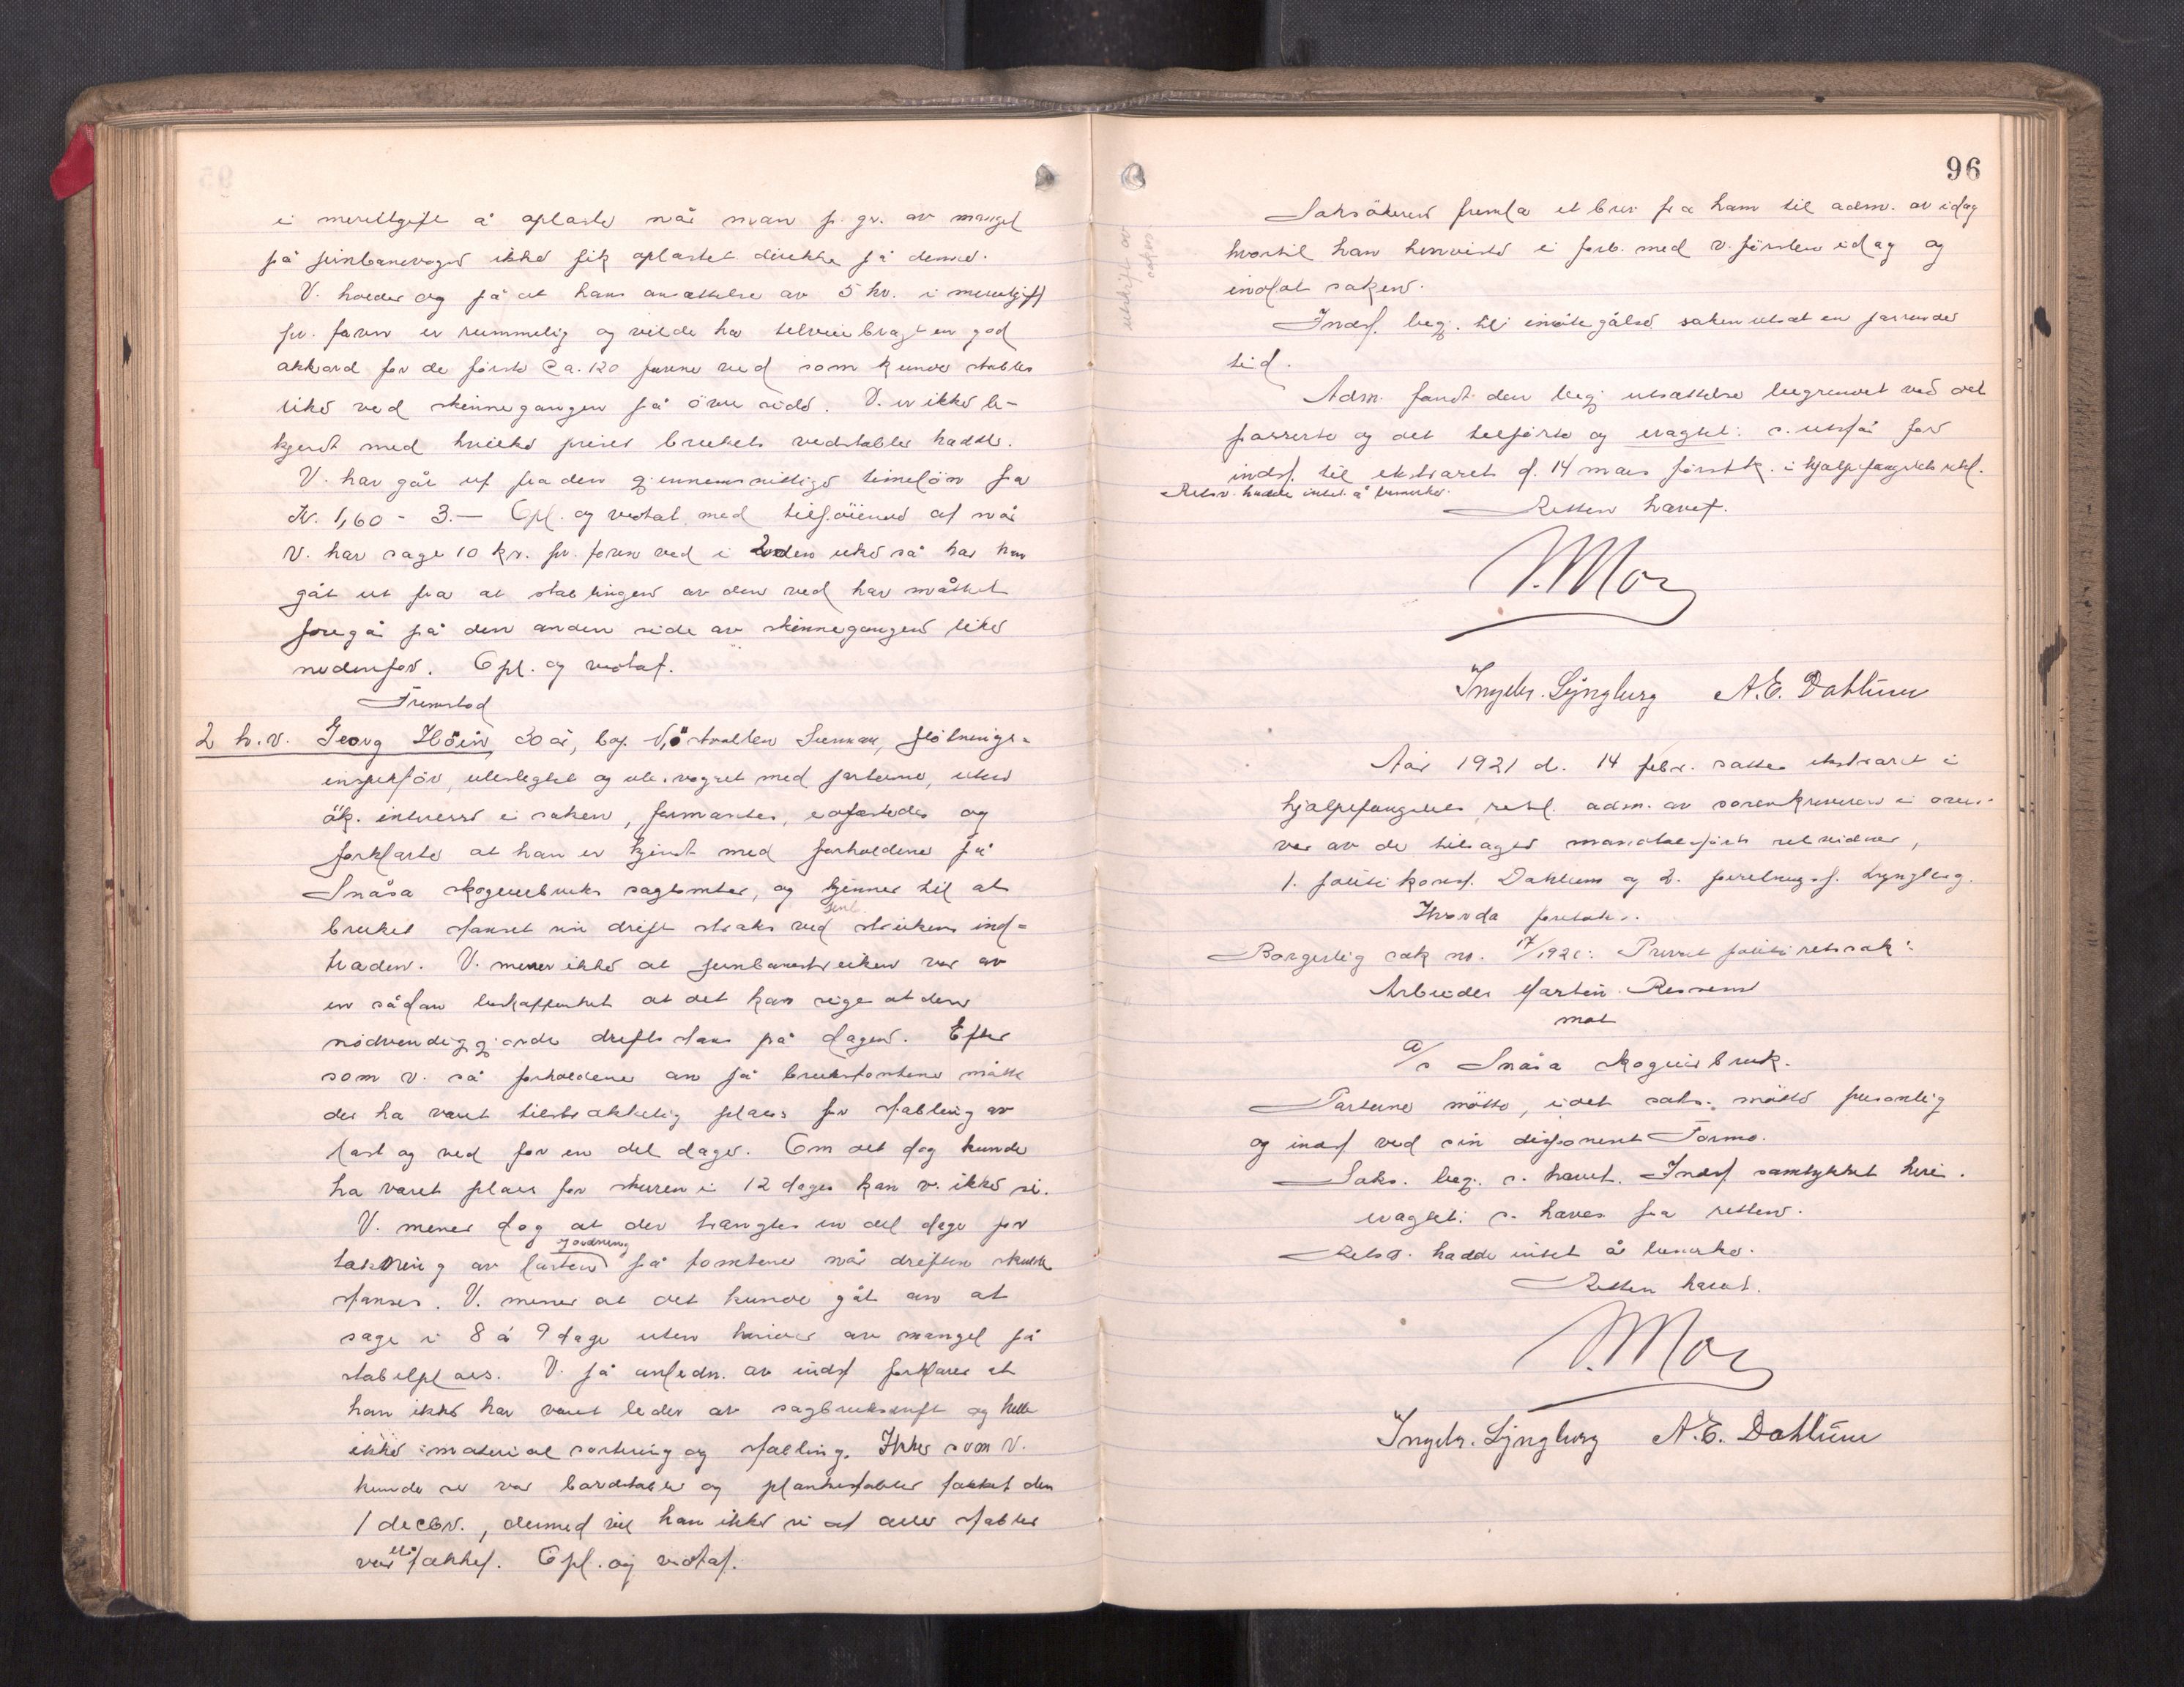 i merutgift å oplaste når man p. gr. av mangel
på jernbanevogner ikke fik oplastet direkte på denne.
V. holder dog på at hans ansættelse av 5 kr. i merutgift
pr. favn er rummelig og vilde ha tilveiebragt en god
akkord for de første ca. 120 favne ved som kunde stables
like ved skinnegangen på övre side. V. er ikke be-
kjendt med hvilke priser brukets vedstabler hadde.
V. har gåt ut fra den gjennemsnittlige timelön fra
Kr. 1,60 - 3.— Opl. og vedtat med tilföiende at når
V. har sagt 10 kr. pr. favn ved i 2den uke så har han
gåt ut fra at stablingen av den ved har måttet
foregå på den anden side av skinnegangen like
nedenfor. Opl. og vedtat.
Fremstod
2 h.v. Georg Höin, 30 år, Snåsa, flötnings-
inspektör, ubeslegtet og ube.vogret med parterne, uten
øk. interesse i saken, formantes, edfæstedes og
forklarte at han er kjendt med forholdene på
Snåsa skogeierbruks sagtomter, og kjenner til at
bruket stanset sin drift straks ved jernb. streikens ind-
træden. V. mener ikke at jernbanestreiken var av
en sådan beskaffenhet at det kan siges at den
nödvendiggjorde driftsstans på dagen. Efter
som v. så forholdene an på brukstomtene måtte
der ha været tilstrækkelig plass for stabling av
last og ved for en del dage. Om det dog kunde
ha været plass for skuren i 12 dager kan v. ikke si.
V. mener dog at der trængtes en del dage for
takning av lasten på tomtene når driften skulde
stanses. V. mener at det kunde gåt an at
sage i 8 á 9 dage uten hinder av mangel på
stabelplass. V. på anledn. av indst. forklarer at
han ikke har været leder av sagbruksdrift og heller
ikke materialsortering og stabling. Ikke som V.
kunde se var bordstabler og plankestabler takket den
1 decbr., dermed vil han ikke si at alle stabler
var takket. Opl. og vedtat.
96
utskrift av saken
Saksökeren fremla et brev fra ham til adm. av idag
hvortil han henviste i forb. med v. førslen idag og
indlot saken.
Indst. begj. til imötegåelse saken utsat en passende
tid.
Adm. fandt den begj. utsættelse begrundet ved det
passerte og det tilførte og eragtet: s. utstår for
indst. til ekstraret d. 14 mars førstk. i hjælpefængslets retsl.
Retsv. hadde intet å bemerke.
Retten hævet.
V. Mo
Ingebr. Lyngberg A. E. Dahlum
Aar 1921 d. 14 febr. sattes ekstraret i
hjælpefængslets retsl. adm. av sorenskriveren i overs-
vær av de tilsagte mandtalsførte retsvidner,
1. politikonst. Dahlum og 2. Lyngberg.
Hvorda foretokes.
Borgerlig sak no. 17/1921: Privat politiretssak:
Arbeider Martin Ressem
mot
A/s Snåsa skogeierbruk.
Parterne mötte, idet saks. mötte personlig
og indst ved sin disponent Formo.
Saks. begj. s. hævet. Indst samtykket heri.
eragtet: s. hæves fra retten.
Retsv. hadde intet å bemerke.
Retten hævet.
V. Mo
Ingebr. Lyngberg A. E. Dahlum